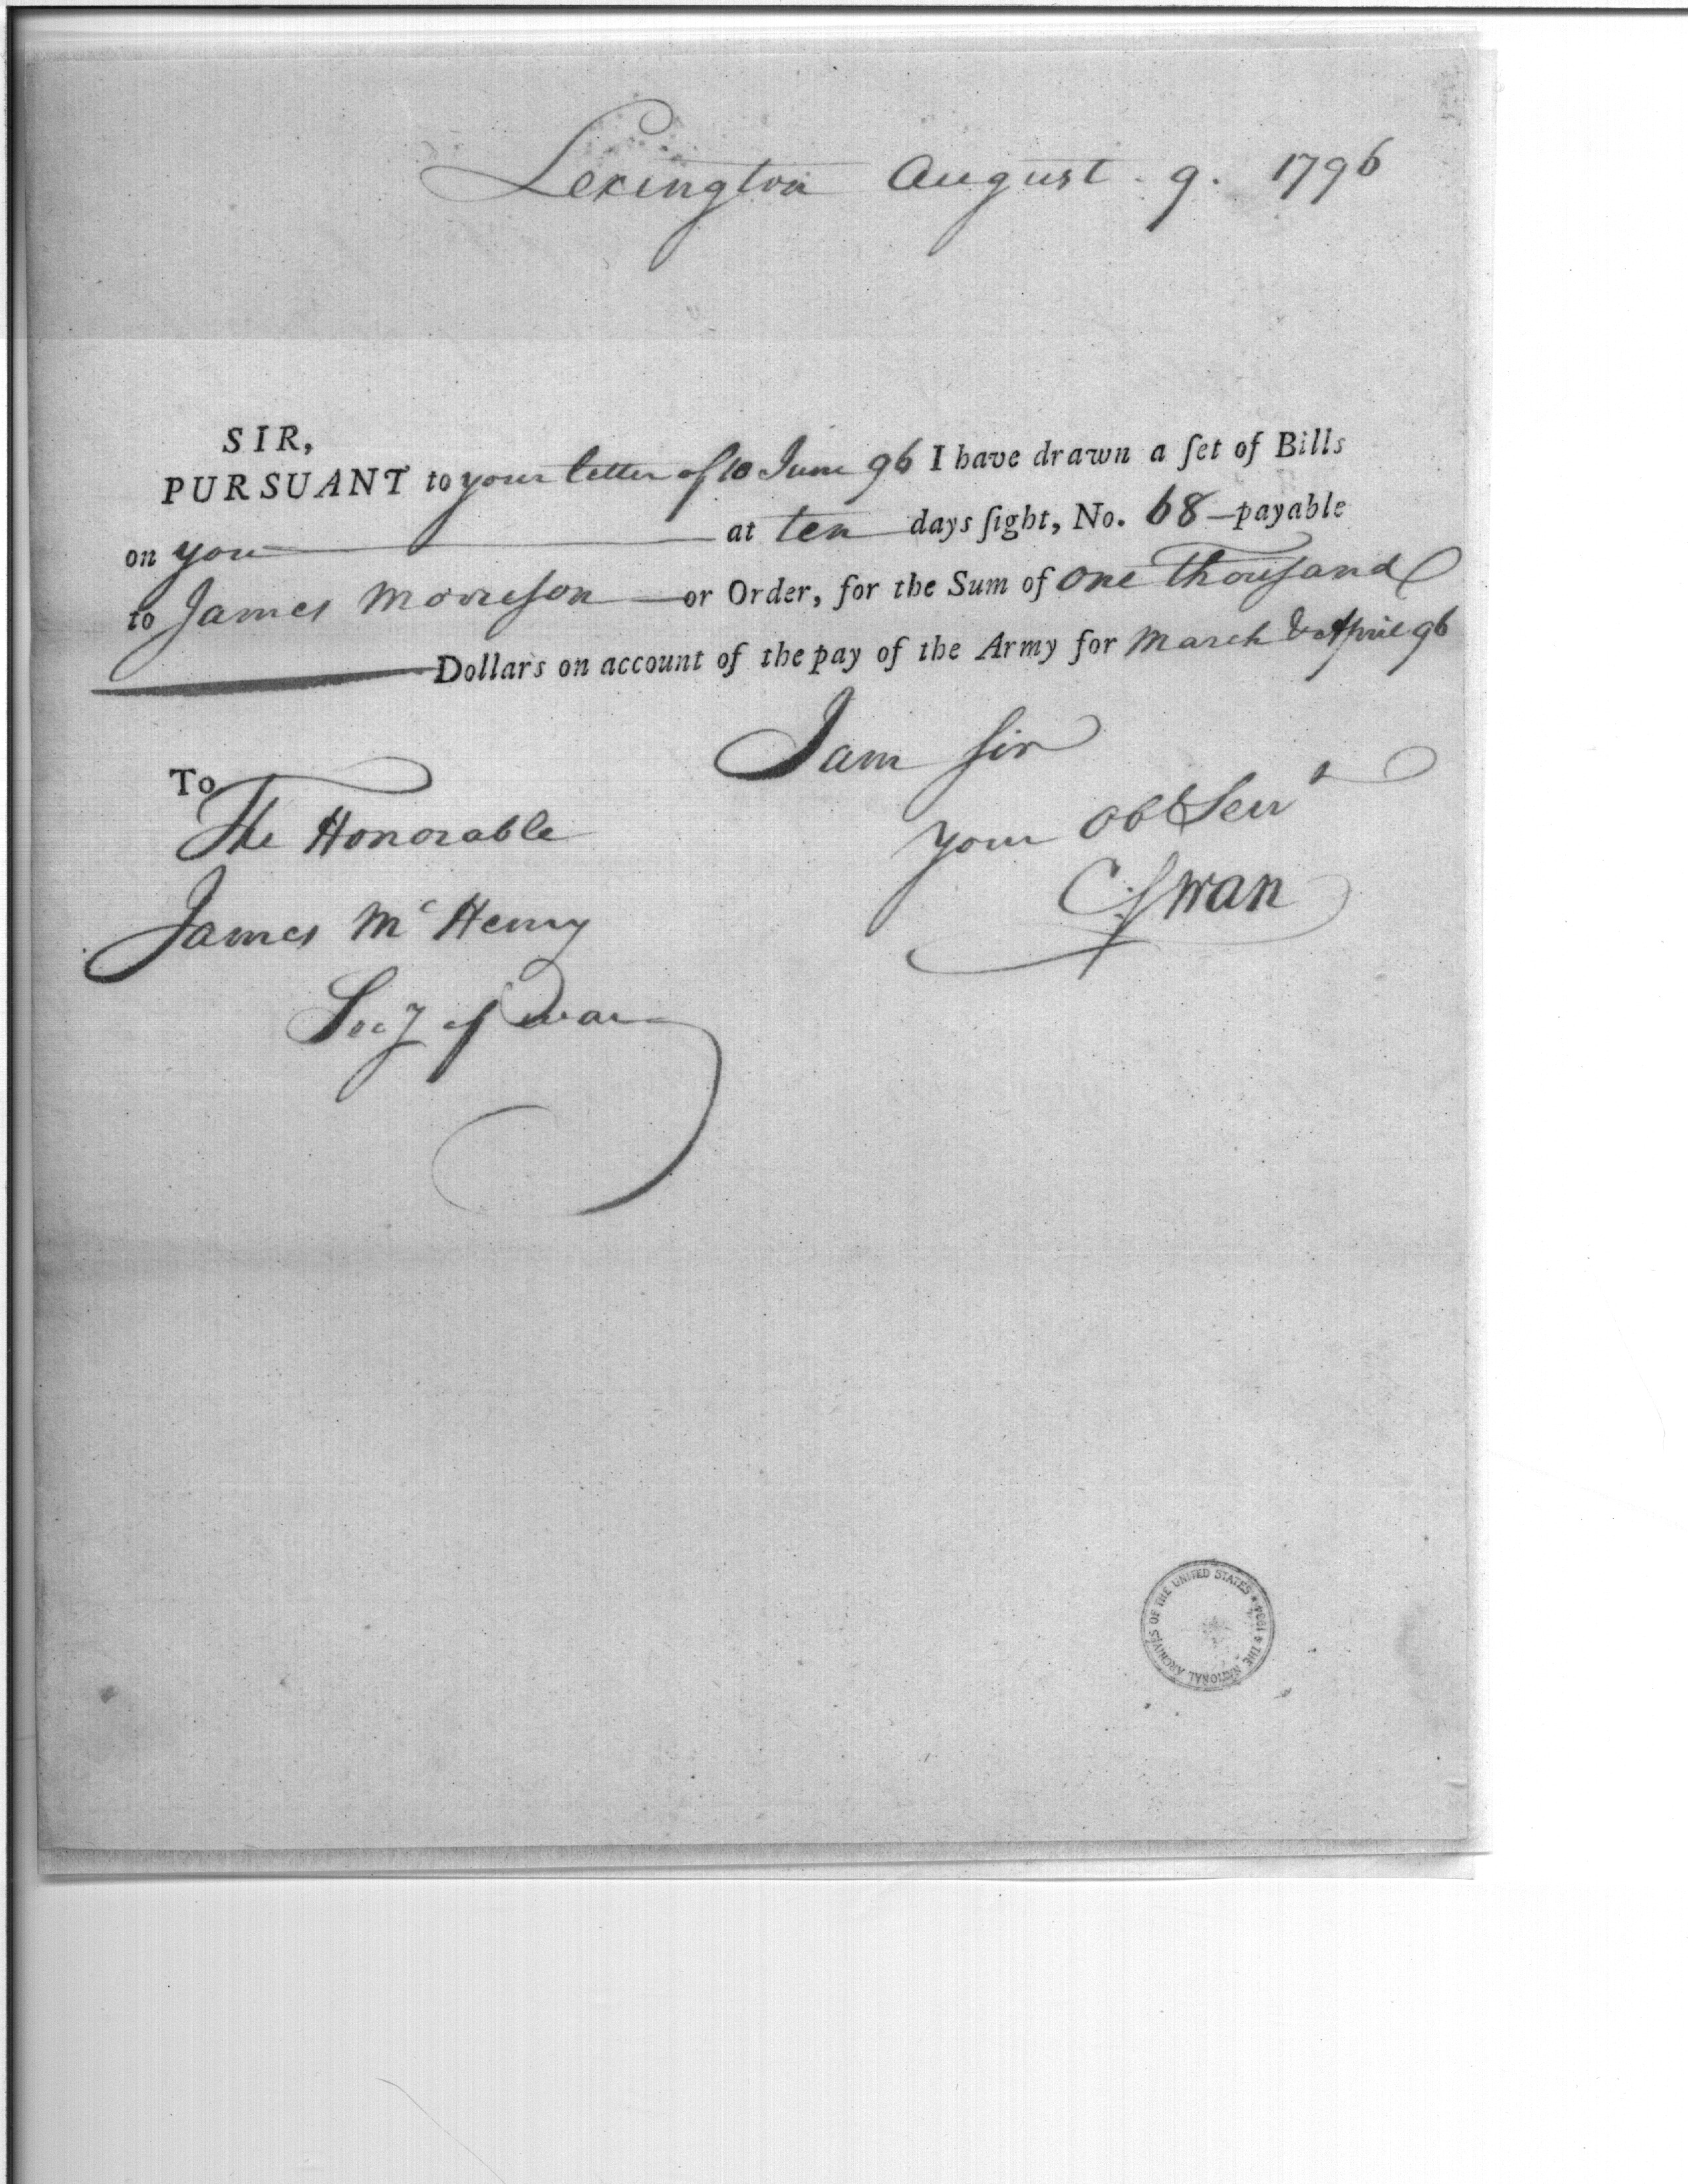 Lexington August . 9 . 1796
SIR,
PURSUANT to your letter of 10 June 96 I have drawn a ſet of Bills
on you at ten days ſight, No. 68 payable
to James Morrison or Order, for the Sum of One Thouſand
Dollars on account of the pay of the Army for March & April 96
I am Sir
your Obt Servt
C Swan
To
The Honorable
James McHenry
Secy of War
THE NATIONAL ARCHIVES OF THE UNITED STATES * 1934 *